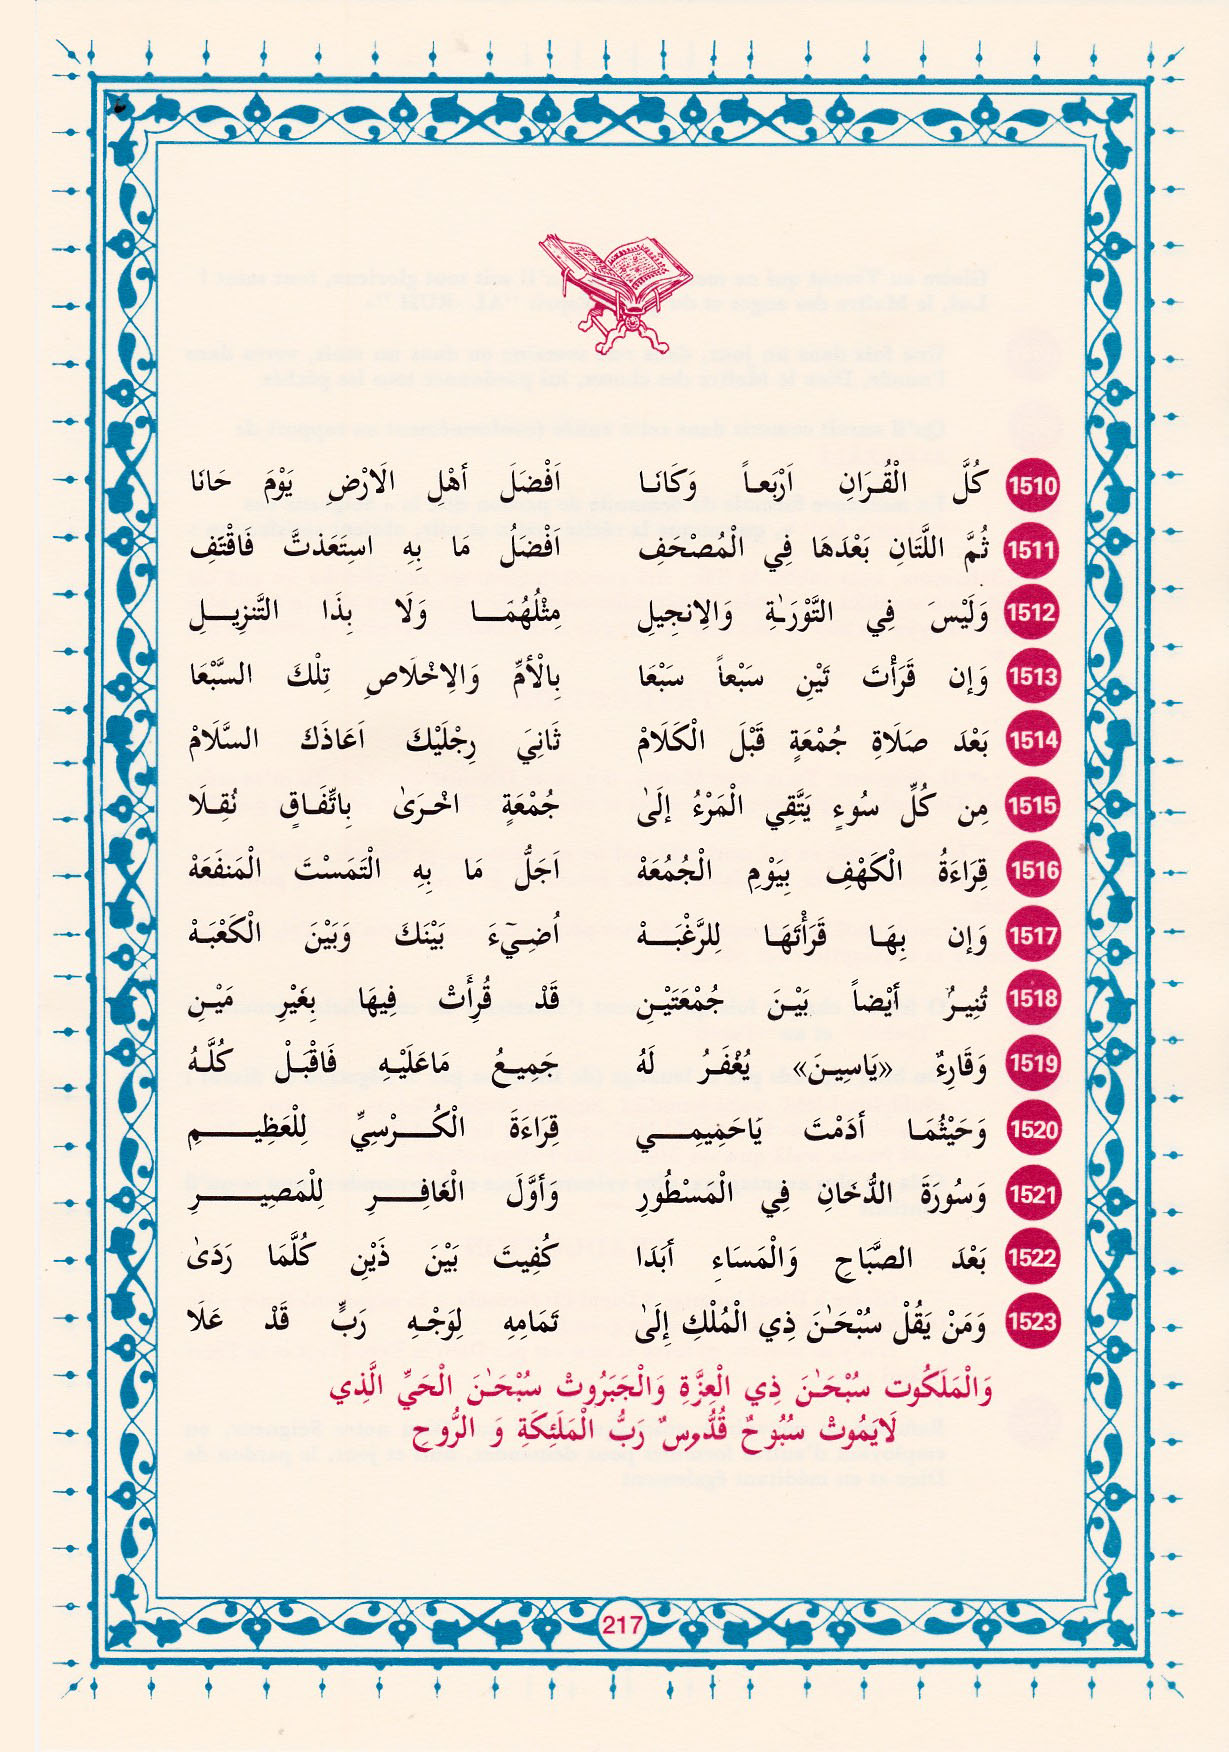 1510 كُلَّ الْقُـرَانِ اَرْبَعـاً وَكَانَـا اَفْضَلَ أهْلِ الَارْضِ يَوْمَ حَانَا
1511 ثُمَّ اللَّتَانِ بَعْدَهَا فِي الْمُصْحَفِ اَفْضَلُ مَا بِهِ اسْتَعَذتَّ فَاقْتَفِ
1512 وَلَيْسَ فِي التَّوْرَىٰةِ وَالِانجِيلِ مِثْلُهُمَـــا وَلَا بِذَا التَّنزِيـــلِ
1513 وَإن قَرَأْتَ تَيْنِ سَبْعاً سَبْعَا بِالْأمِّ وَالِاخْلَاصِ تِلْكَ السَّبْعَا
1514 بَعْدَ صَلَاةِ جُمْعَةٍ قَبْلَ الْكَلَامْ ثَانِيَ رِجْلَيْكَ اَعَاذَكَ السَّلَامْ
1515 مِن كُلِّ سُوءٍ يَتَّقِي الْمَرْءُ إلَىٰ جُمْعَةٍ اخْـرَىٰ بِاتِّفَـاقٍ نُقِـلَا
1516 قِرَاءَةُ الْكَهْفِ بِيَوْمِ الْجُمُعَهْ اَجَلُّ مَا بِهِ الْتَمَسْتَ الْمَنفَعَهْ
1517 وَإن بِهَـا قَرَأْتَهَـا لِلرَّغْبَـــهْ اُضِـيٓءَ بَيْنَكَ وَبَيْنَ الْكَعْبَـهْ
1518 تُنِيـرُ أيْضاً بَيْـنَ جُمْعَتَيْـنِ قَدْ قُرِأَتْ فِيهَا بِغَيْرِ مَيْـنِ
1519 وَقَارِءٌ «يَاسِيـنَ» يُغْفَـرُ لَهُ جَمِيـعُ مَاعَلَيْـهِ فَاقْبَـلْ كُلَّـهُ
1520 وَحَيْثُمَـا أدَمْتَ يَاحَمِيمِــي قِرَاءَةَ الْكُـــرْسِيِّ لِلْعَظِيـــمِ
1521 وَسُورَةَ الدُّخَانِ فِي الْمَسْطُورِ وَأوَّلَ الْغَافِـــرِ لِلْمَصِيـــرِ
1522 بَعْدَ الصَّبَاحِ وَالْمَسَاءِ أبَدَا كُفِيتَ بَيْنَ ذَيْنِ كُلَّمَا رَدَىٰ
1523 وَمَنْ يَقُلْ سُبْحَـٰنَ ذِي الْمُلْكِ إلَىٰ تَمَامِهِ لِوَجْـهِ رَبٍّ قَدْ عَلَا
وَالْمَلَكُوت سُبْحَـٰنَ ذِي الْعِزَّةِ وَالْجَبَرُوتْ سُبْحَـٰنَ الْحَيِّ الَّذِي
لَايَمُوتْ سُبُوحٌ قُدُّوسٌ رَبُّ الْمَلَئِكَةِ وَ الرُّوحِ
217